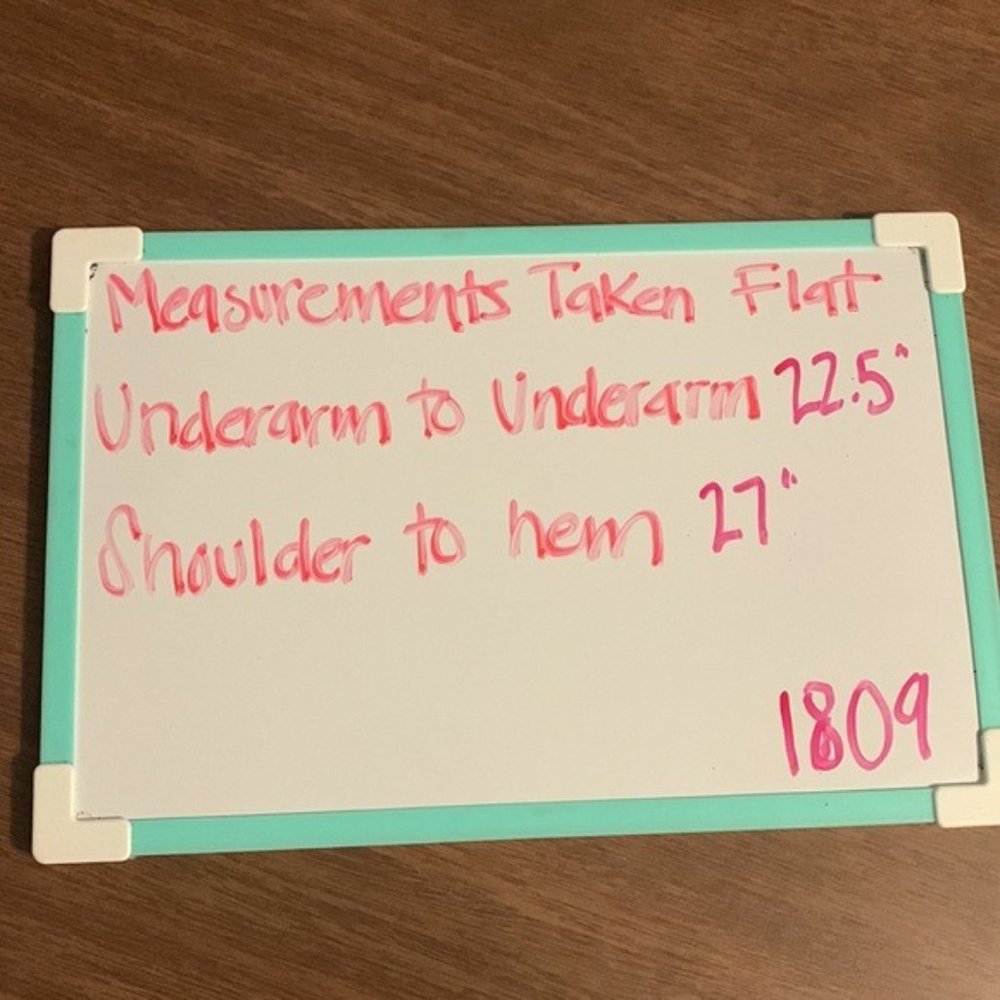 Measurements Taken Flat
Underarm to Underarm 22.5"
Shoulder to hem 27"
1809